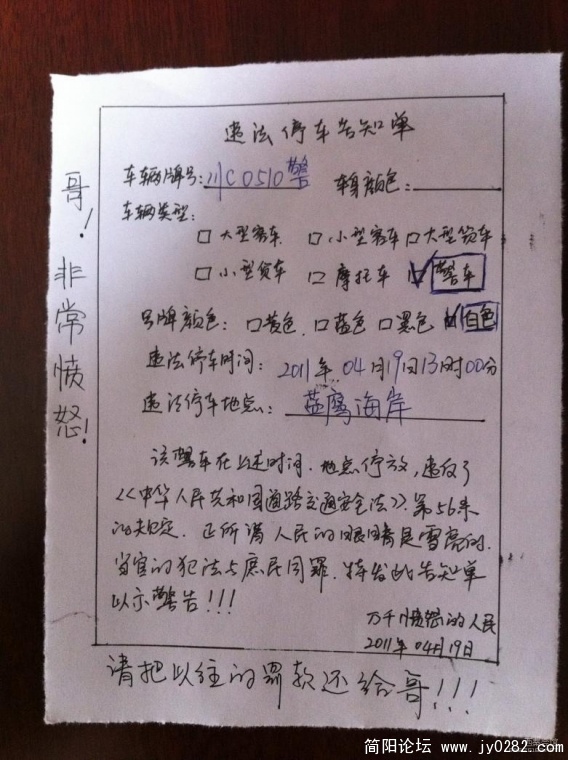 违法停车告知单
车辆牌号:川C0510警 车身颜色:
车辆类型:
□大型客车 □小型客车 □大型货车
□小型货车 □摩托车 ☑警车
号牌颜色: □黄色 □蓝色 □黑色 ☑白色
违法停车时间: 2011年04月19日13时00分
违法停车地点: 蓝鹰海岸
该警车在上述时间、地点停放,违反了
《中华人民共和国道路交通安全法》第56条
的规定。正所谓人民的眼睛是雪亮的.
当官的犯法与庶民同罪.特发此告知单
以示警告!!!
万千愤怒的人民
2011年04月19日
哥!非常愤怒!
请把以往的罚款还给哥!!!
简阳论坛 www.jy0282.com